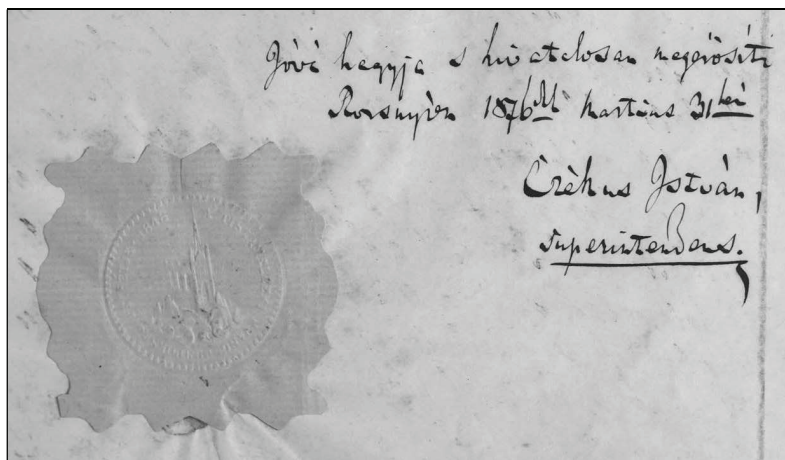 Jóvá hagyja s hivatalosan megerősíti
Rozsnyón 1876dik Martius 31kén
Czékus István,
superintendens.